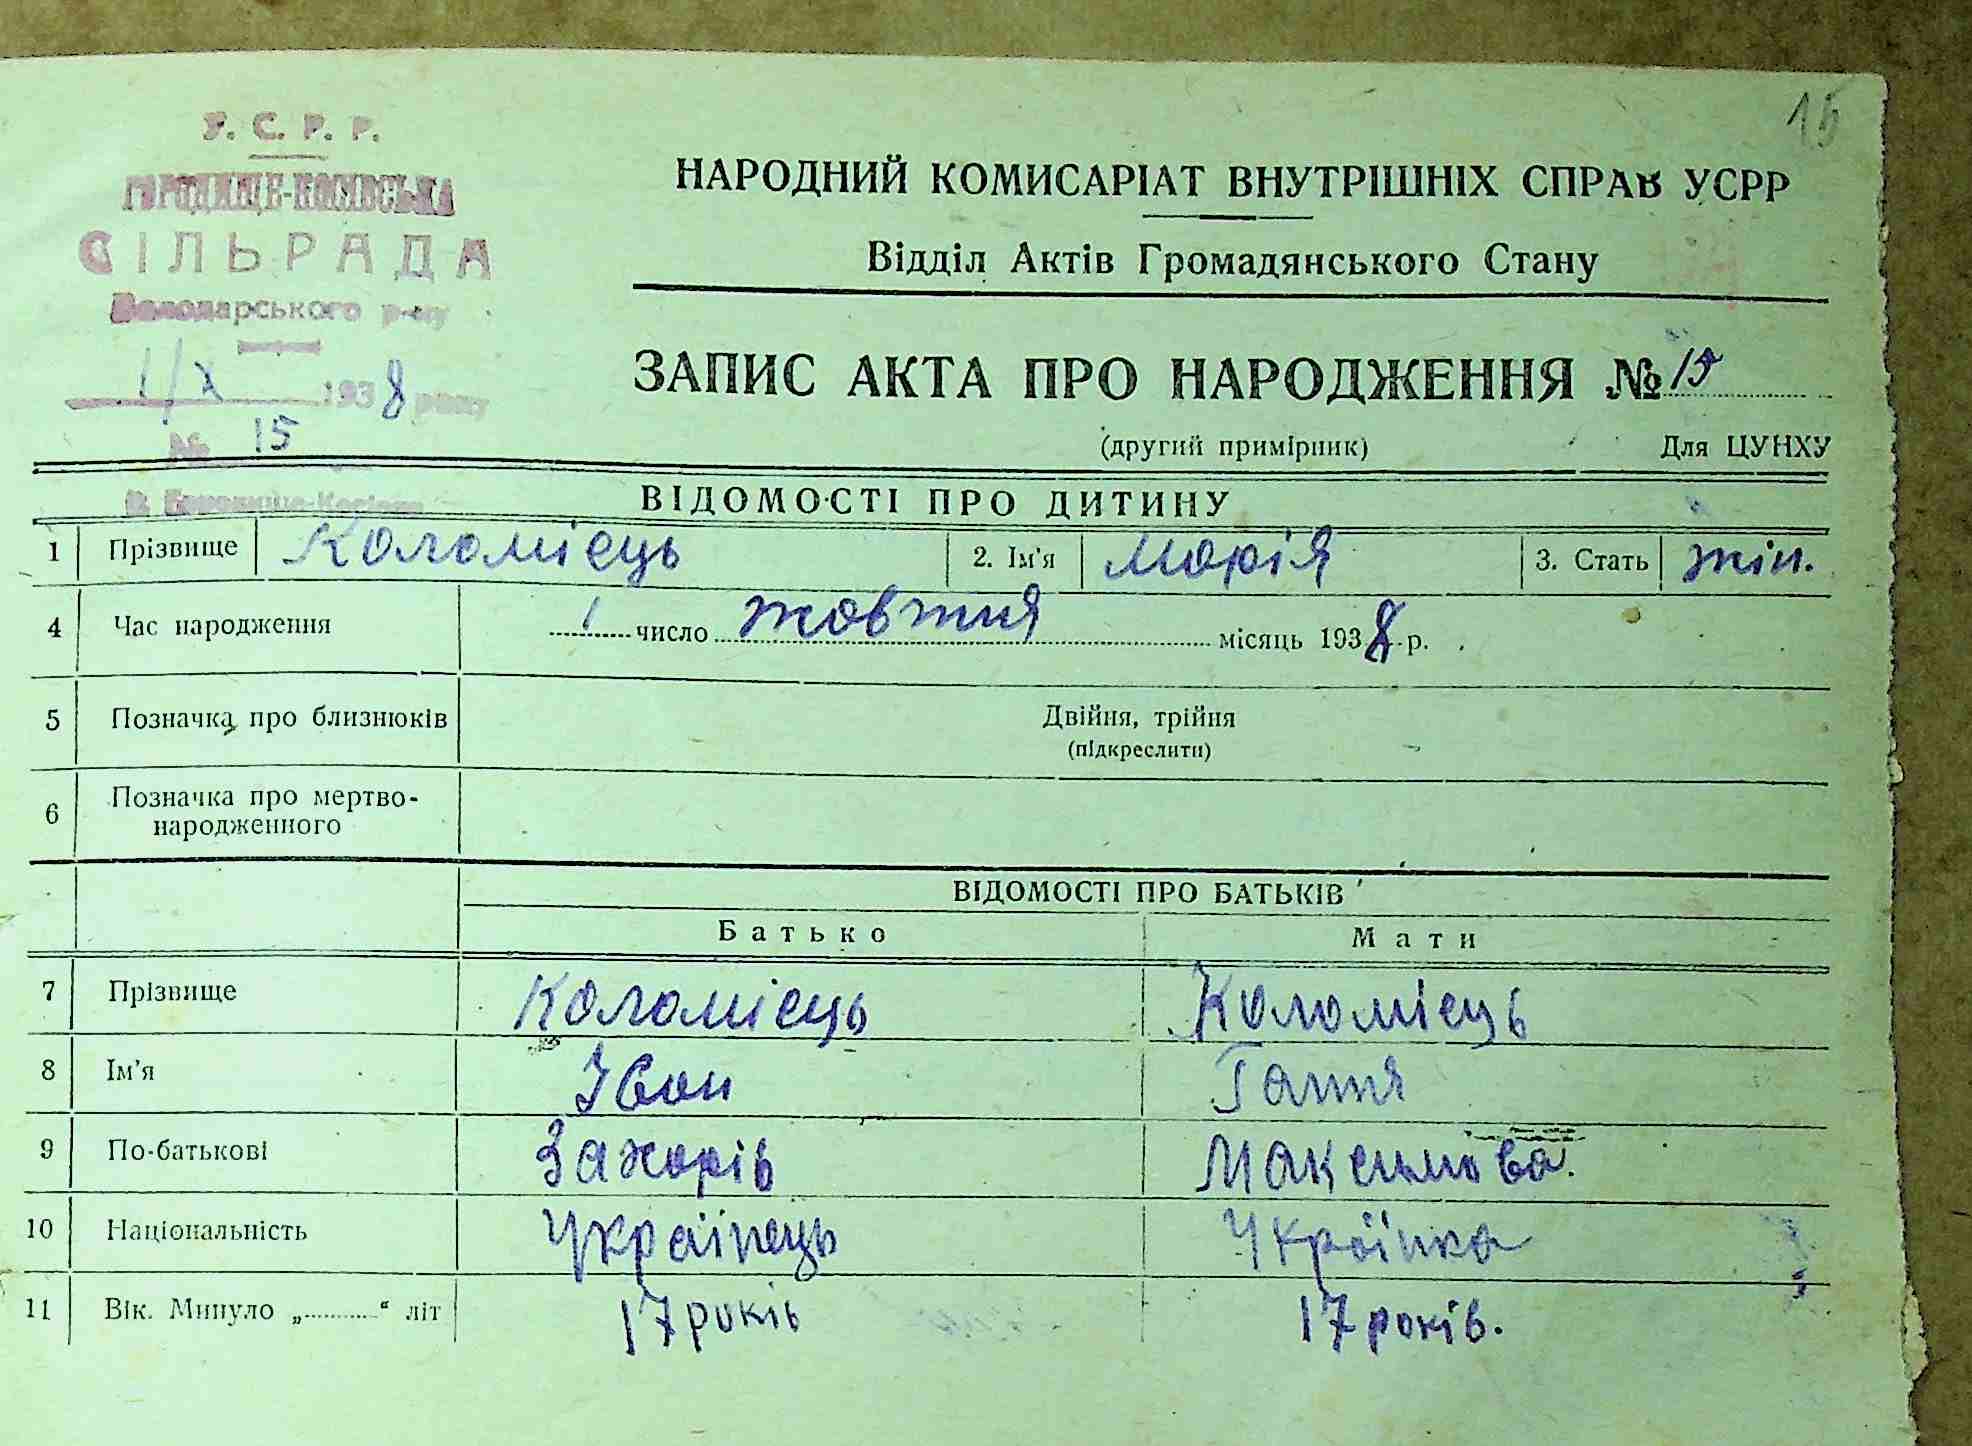 15
У. С. Р. Р.
ГОРОДИЩЕ-КОСІВСЬКА
СІЛЬРАДА
Володарського р-ну
1/X 1938 року
№ 15
НАРОДНИЙ КОМИСАРІАТ ВНУТРІШНІХ СПРАВ УСРР
Відділ Актів Громадянського Стану
ЗАПИС АКТА ПРО НАРОДЖЕННЯ № 15
(другий примірник) Для ЦУНХУ
ВІДОМОСТІ ПРО ДИТИНУ
1 Прізвище Коломієць 2. Ім'я Марія 3. Стать жін.
4 Час народження 1 число жовтня місяць 1938 р.
5 Позначка про близнюків Двійня, трійня
(підкреслити)
6 Позначка про мертво-
народженного
ВІДОМОСТІ ПРО БАТЬКІВ
Батько Мати
7 Прізвище Коломієць Коломієць
8 Ім'я Іван Ганна
9 По-батькові Захарів Максимова.
10 Національність Українець Українка
11 Вік. Минуло „..........“ літ 17 років 17 років.